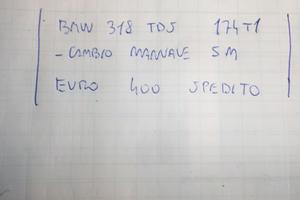 BMW 318 TDS 174T1
- CAMBIO MANUALE 5M
EURO 400 SPEDITO